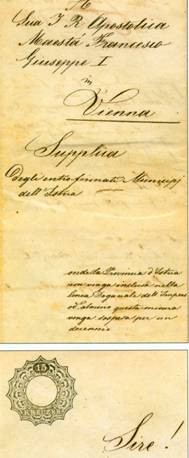 A
Sua I. R. Apostolica
Maestà Francesco
Giuseppe I
in
Vienna
Supplica
degli entro firmati Municipj
dell'Istria
onde la Provincia d'Istria
non venga inclusa nella
linea Doganale dell'Impero
od almeno questa misura
venga sospesa per un
decennio
15
Sire!